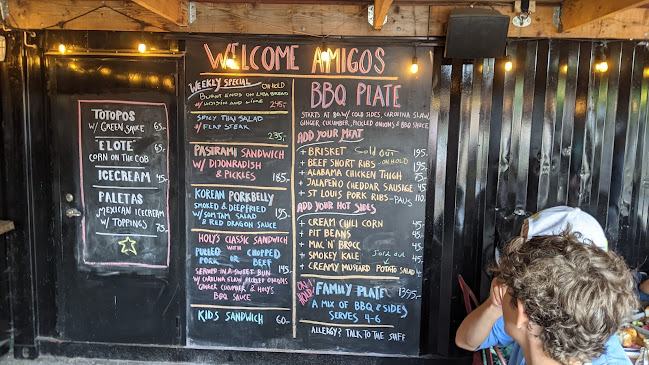 WELCOME AMIGOS
TOTOPOS
W/ GREEN SAUCE 65.
ELOTE
CORN ON THE COB 65.
ICECREAM 45.
PALETAS
MEXICAN ICECREAM
W/ TOPPINGS 75.
WEEKLY SPECIAL ON HOLD
BURNT ENDS ON
W/ HOISIN AND LIME 245.
SPICY THAI SALAD
W/ FLAP STEAK 235.
PASTRAMI SANDWICH
W/ DIJONRADISH
& PICKLES 185.
KOREAN PORKBELLY
SMOKED & DEEPFRIED
W/ SOM TAM SALAD 195.
& RED DRAGON SAUCE
HOLY'S CLASSIC SANDWICH
PULLED OR CHOPPED
PORK BEEF 145.
SERVED IN A SWEET BUN
W/ CAROLINA SLAW, PICKLED ONIONS
GINGER CUCUMBER & HOLY'S
BBQ SAUCE
KIDS SANDWICH 60.
BBQ PLATE
STARTS AT 80 W/ COLD SIDES, CAROLINA SLAW,
GINGER CUCUMBER, PICKLED ONIONS & BBQ SAUCE
ADD YOUR MEAT
+ BRISKET Sold Out 195.
+ BEEF SHORT RIBS - ON HOLD 195.
+ ALABAMA CHICKEN THIGH 75.
+ JALAPEÑO CHEDDAR SAUSAGE 45
+ ST LOUIS PORK RIBS - 110.
ADD YOUR HOT SIDES
+ CREAM CHILI CORN 45.
+ PIT BEANS 45.
+ MAC N' BROCC 45.
+ SMOKEY KALE Sold Out 45.
+ CREAMY MUSTARD POTATO SALAD
ON HOLD
FAMILY PLATE 1395.
A MIX OF BBQ & SIDES
SERVES 4-6
ALLERGY? TALK TO THE STAFF